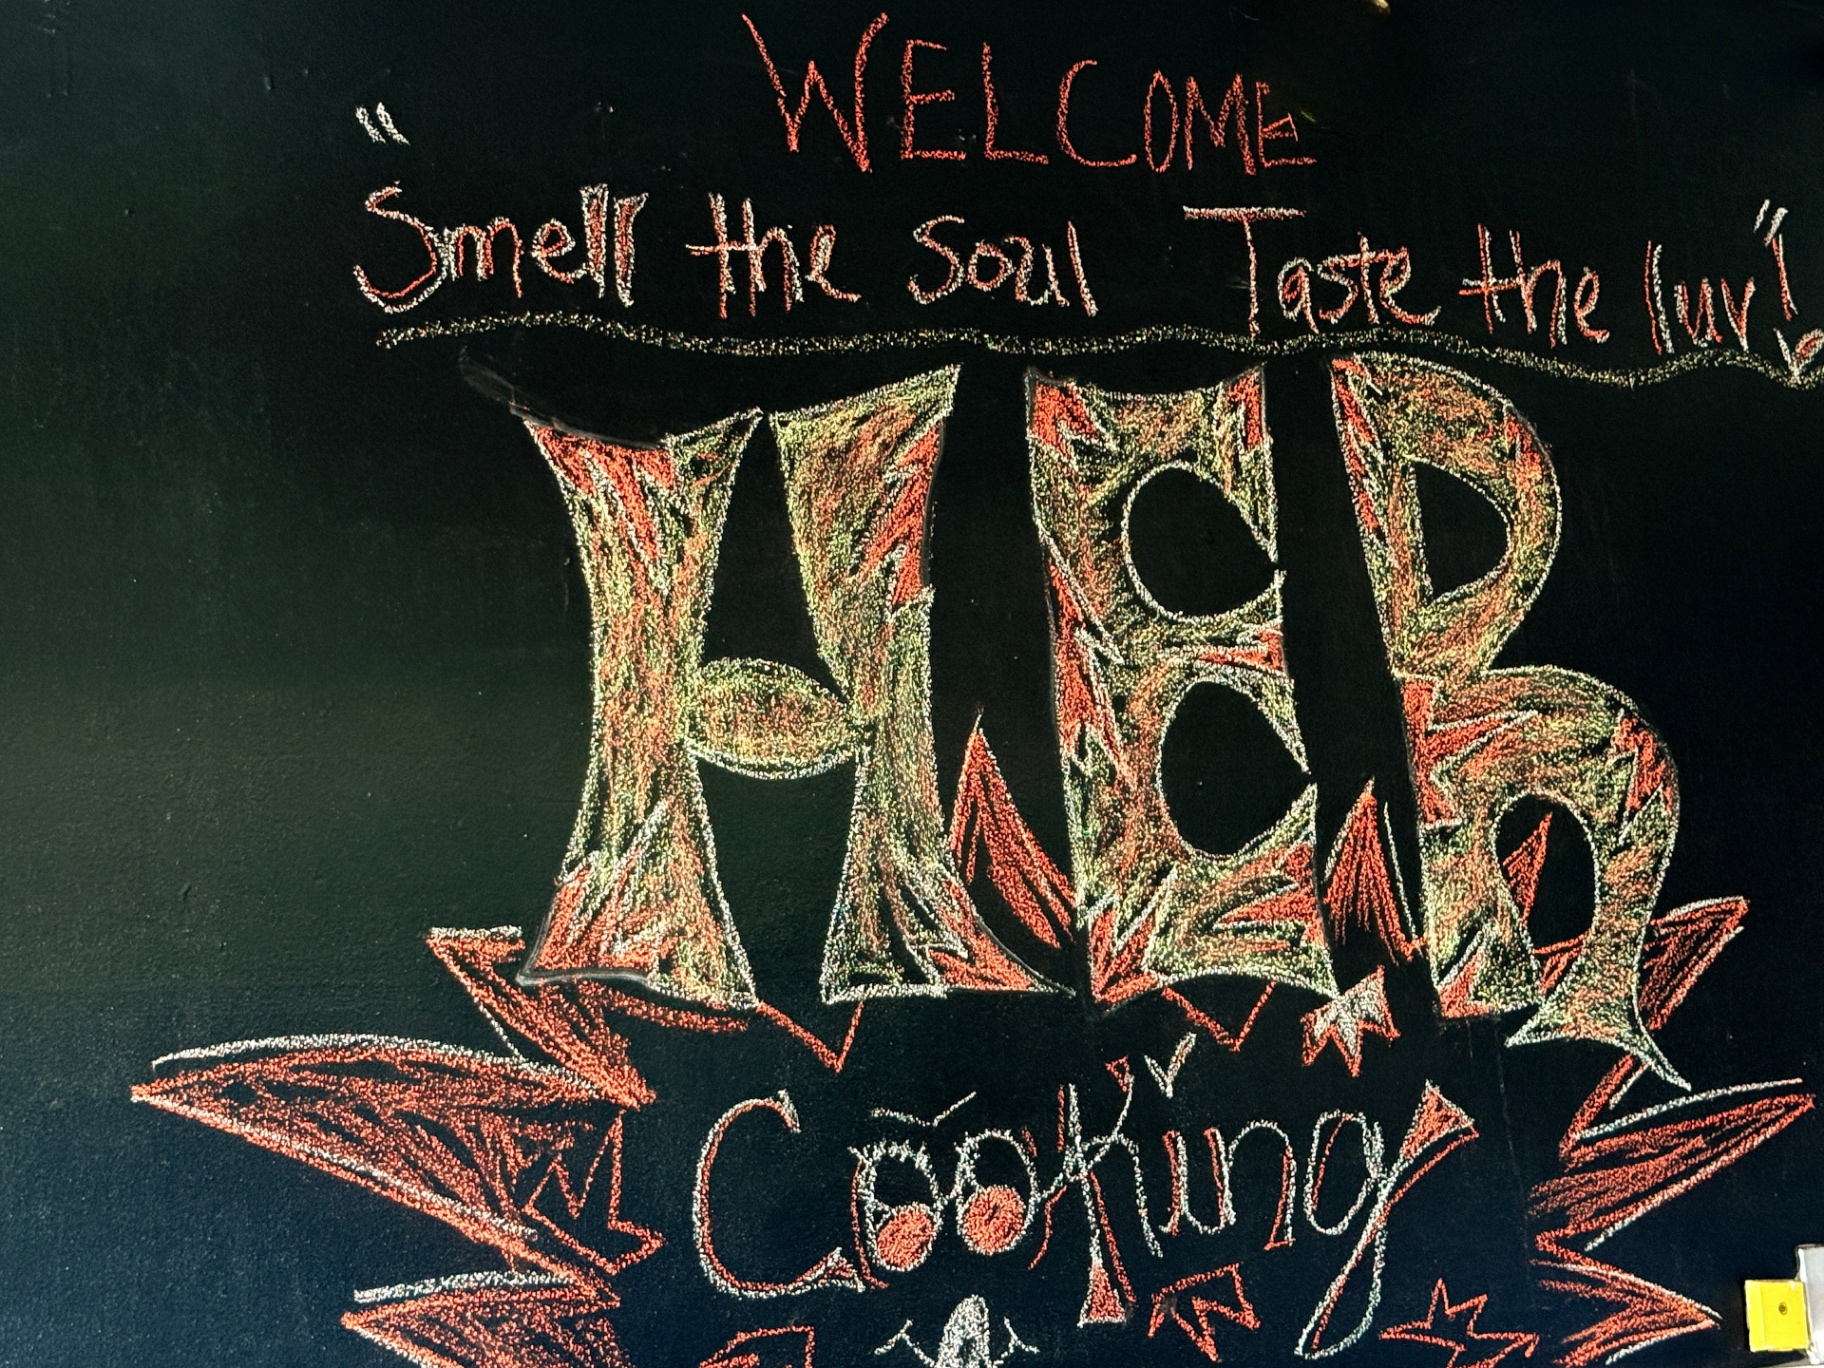 WELCOME
"Smell the Soul Taste the luv!"
HER
Cooking